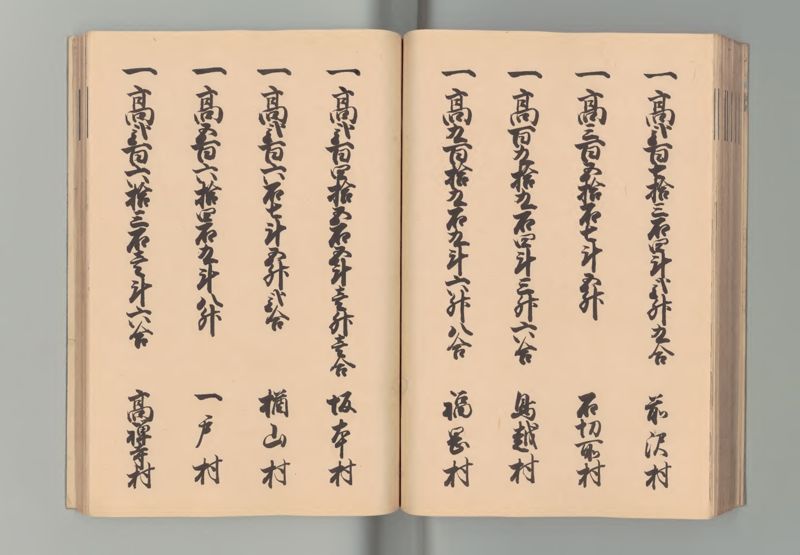 一 高弐百七拾三石四斗弐升九合 前沢村
一 高三百五拾石七斗五升 石切所村
一 高百九拾九石四斗三升六合 鳥越村
一 高九百拾九石九斗六升八合 福岡村
一 高弐百四拾五石五斗壱升壱合 坂本村
一 高弐百六石七斗五升弐合 楢山村
一 高五百六拾四石九斗八升 一戸村
一 高弐百六拾三石壱斗六合 高禅寺村